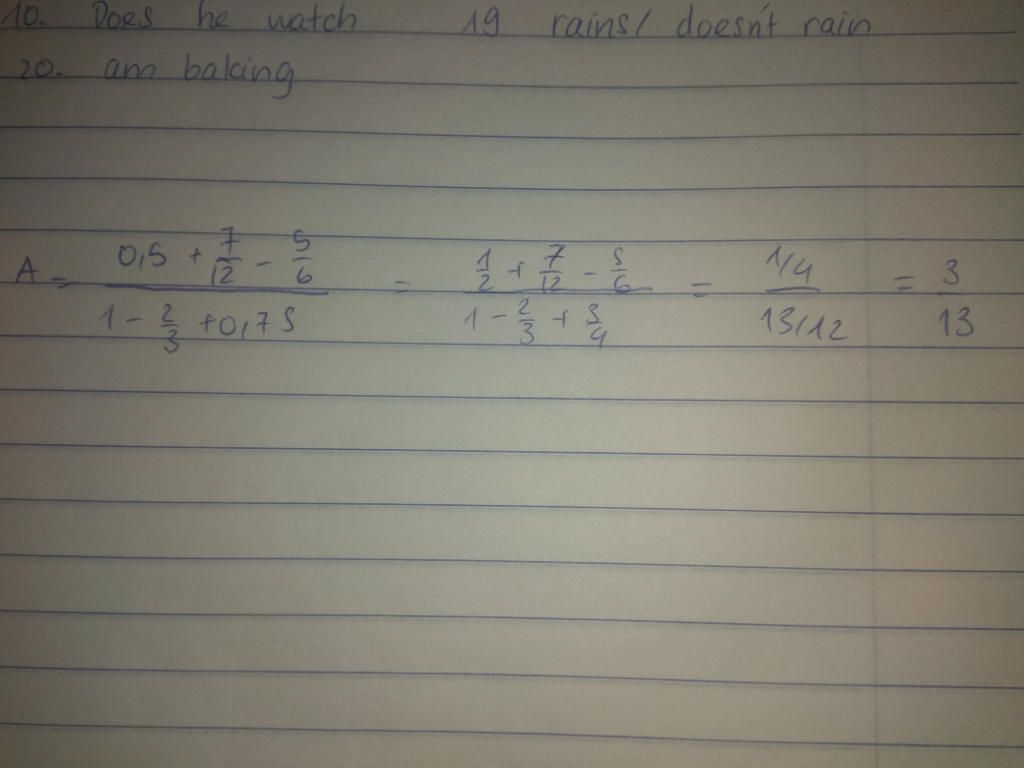 10. Does he watch 19 rains/ doesn't rain
20. am baking
A = (0,5 + 7/12 - 5/6)/(1 - 2/3 + 0,75) = (1/2 + 7/12 - 5/6)/(1 - 2/3 + 3/4) = (1/4)/(13/12) = 3/13